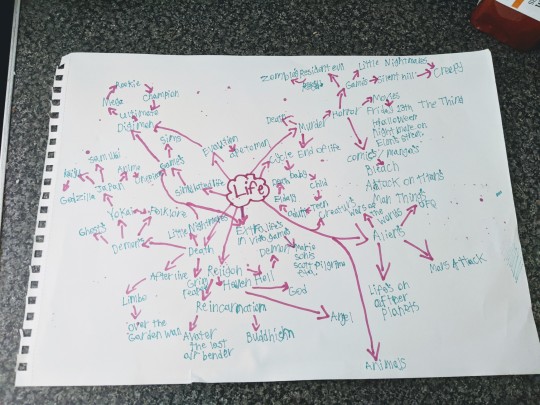 Rookie
Champion
Mega
Ultimate
Digimon
Sims
Evolution
Games
Simulated life
Life
Samurai
Anime
Japan
Godzilla
Yokai
Folklore
Ghosts
Demons
Little Nightmares
Death
After live
Limbo
over the
Garden wall
Grim
Reaper
Religon
Reincarnation
Avatar
the last
air bender
Buddhishn
Heaven
Hell
God
Angel
Demon
Extra lifes
in video games
Scott Pilgrim
Cycle
End of life
baby
Child
Teen
Adult
Death
Death
Murder
Horror
Zombies
Resident evil
Games
Little Nightmares
Silent hill
Creepy
Movies
Friday 13th The Third
Halloween
night mare on
Elm's street
comics
manga's
Bleach
Attack on titans
Man Things
war of
the
worlds
Aliens
Mars Attack
Lifes on
other
planets
Animals